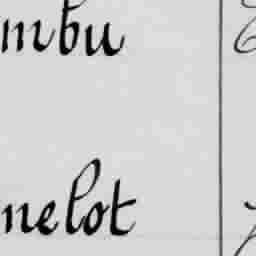 mbu
nelot